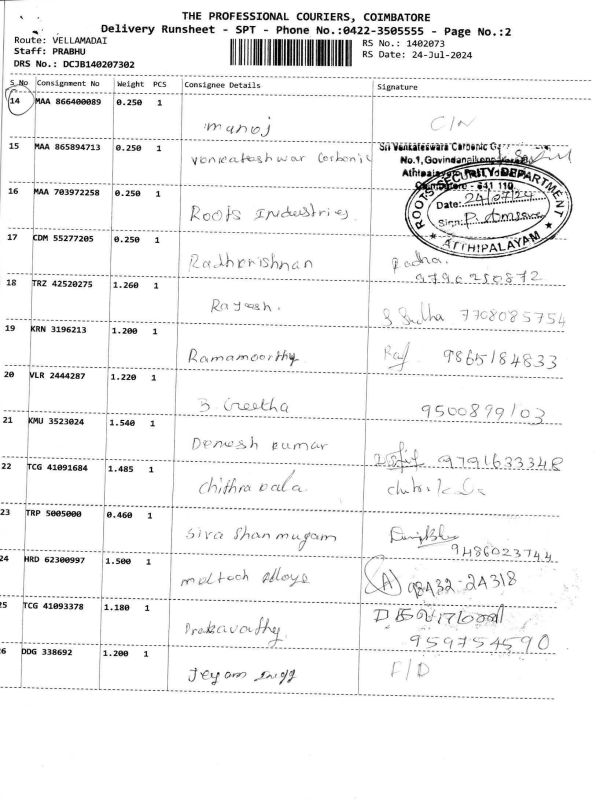 THE PROFESSIONAL COURIERS, COIMBATORE
Delivery Runsheet - SPT - Phone No.:0422-3505555 - Page No.:2
Route: VELLAMADAI
Staff: PRABHU
DRS No.: DCJB140207302
RS No.: 1402073
RS Date: 24-Jul-2024
S.No Consignment No Weight PCS Consignee Details Signature
14 MAA 866400089 0.250 1
manoj
15 MAA 865894713 0.250 1
Sri Venkateswara Carbonic
No.1, Govindanaikenpalayam
venkateshwar Carbonic
16 MAA 703972258 0.250 1
Coimbatore - 641 110
ROOTS SECURITY DEPARTMENT
Date: 24/07/24
Sign:
ATTHIPALAYAM
Roots Industries.
17 CDM 55277205 0.250 1
Radhkrishnan Radha.
9790250872
18 TRZ 42520275 1.260 1
Rajesh. S Sudha 7708085754
19 KRN 3196213 1.200 1
Ramamoorthy Raj 9865184833
20 VLR 2444287 1.220 1
B. Geetha 9500899103
21 KMU 3523024 1.540 1
Denesh kumar 9791633348
22 TCG 41091684 1.485 1
chithra bala.
23 TRP 5005000 0.460 1
Siva Shanmugam
9486023744
24 HRD 62300997 1.500 1
meltech Alloys 98432-24318
25 TCG 41093378 1.180 1
959754590
26 DDG 338692 1.200 1
Jeyam F/D